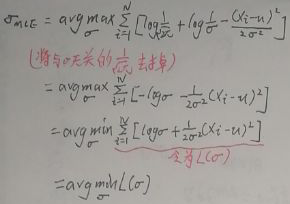 σ_MLE = arg max_σ Σ_{i=1}^{N} [log 1/√2π + log 1/σ - (xi-u)²/2σ²]
(将与σ无关的 1/√2π 去掉)
= arg max_σ Σ_{i=1}^{N} [-logσ - 1/2σ² (xi-u)²]
= arg min_σ Σ_{i=1}^{N} [logσ + 1/2σ² (xi-u)²]
令为L(σ)
= arg min_σ L(σ)